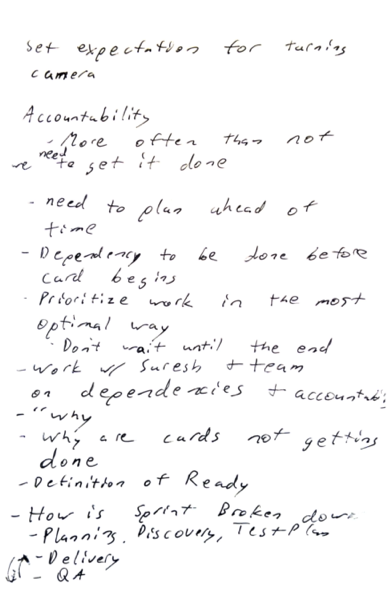 set expectation for turning
camera
Accountability
- More often than not
we need to get it done
- need to plan ahead of
time
- Dependency to be done before
card begins
- Prioritize work in the most
optimal way
- Don't wait until the end
- Work w/ Suresh + team
on dependencies + accountabi
- "why
- why are cards not getting
done
- Definition of Ready
- How is Sprint Broken down
- Planning, Discovery, Test Plan
- Delivery
- QA